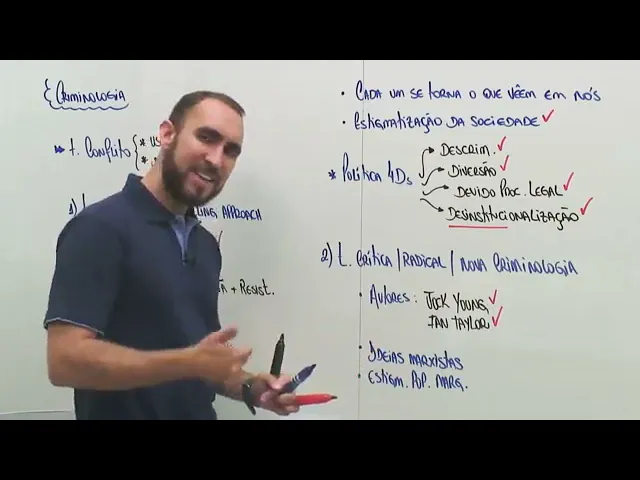 CRIMINOLOGIA
T. CONFLITO
1)
LING APPROACH
+ RESIST.
• CADA UM SE TORNA O QUE VÊEM EM NÓS
• ESTIGMATIZAÇÃO DA SOCIEDADE
* POLÍTICA 4Ds
DESCRIM.
DIVERSÃO
DEVIDO PROC. LEGAL
DESINSTITUCIONALIZAÇÃO
2) T. CRÍTICA / RADICAL / NOVA CRIMINOLOGIA
• AUTORES: JOCK YOUNG
IAN TAYLOR
• IDEIAS MARXISTAS
• ESTIGM. POP. MARG.